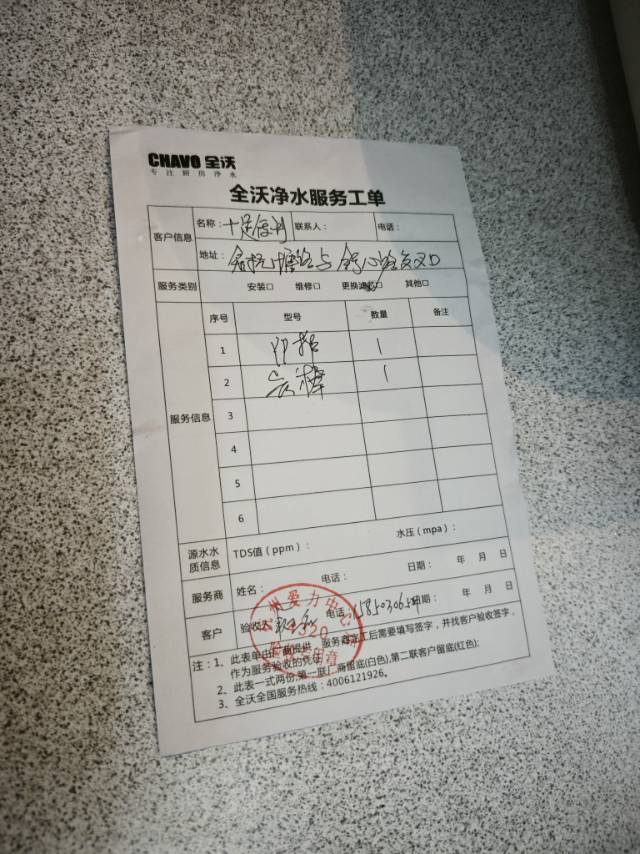 CHAVO 全沃
专注厨房净水
全沃净水服务工单
客户信息 名称：十足便利 联系人： 电话：
地址： 路与 路交叉口
服务类别 安装□ 维修□ 更换滤芯□ 其他□
服务信息 序号 型号 数量 备注
1 1
2 1
3
4
5
6
源水水质信息 TDS值（ppm）： 水压（mpa）：
服务商 姓名： 电话： 日期： 年 月 日
客户 验收人 电话： 日期： 年 月 日
注：1、此表单由厂商提供，服务商完工后需要填写签字，并找客户验收签字，
作为服务验收的凭证
2、此表一式两份,第一联厂商留底(白色),第二联客户留底(红色);
3、全沃全国服务热线：4006121926。